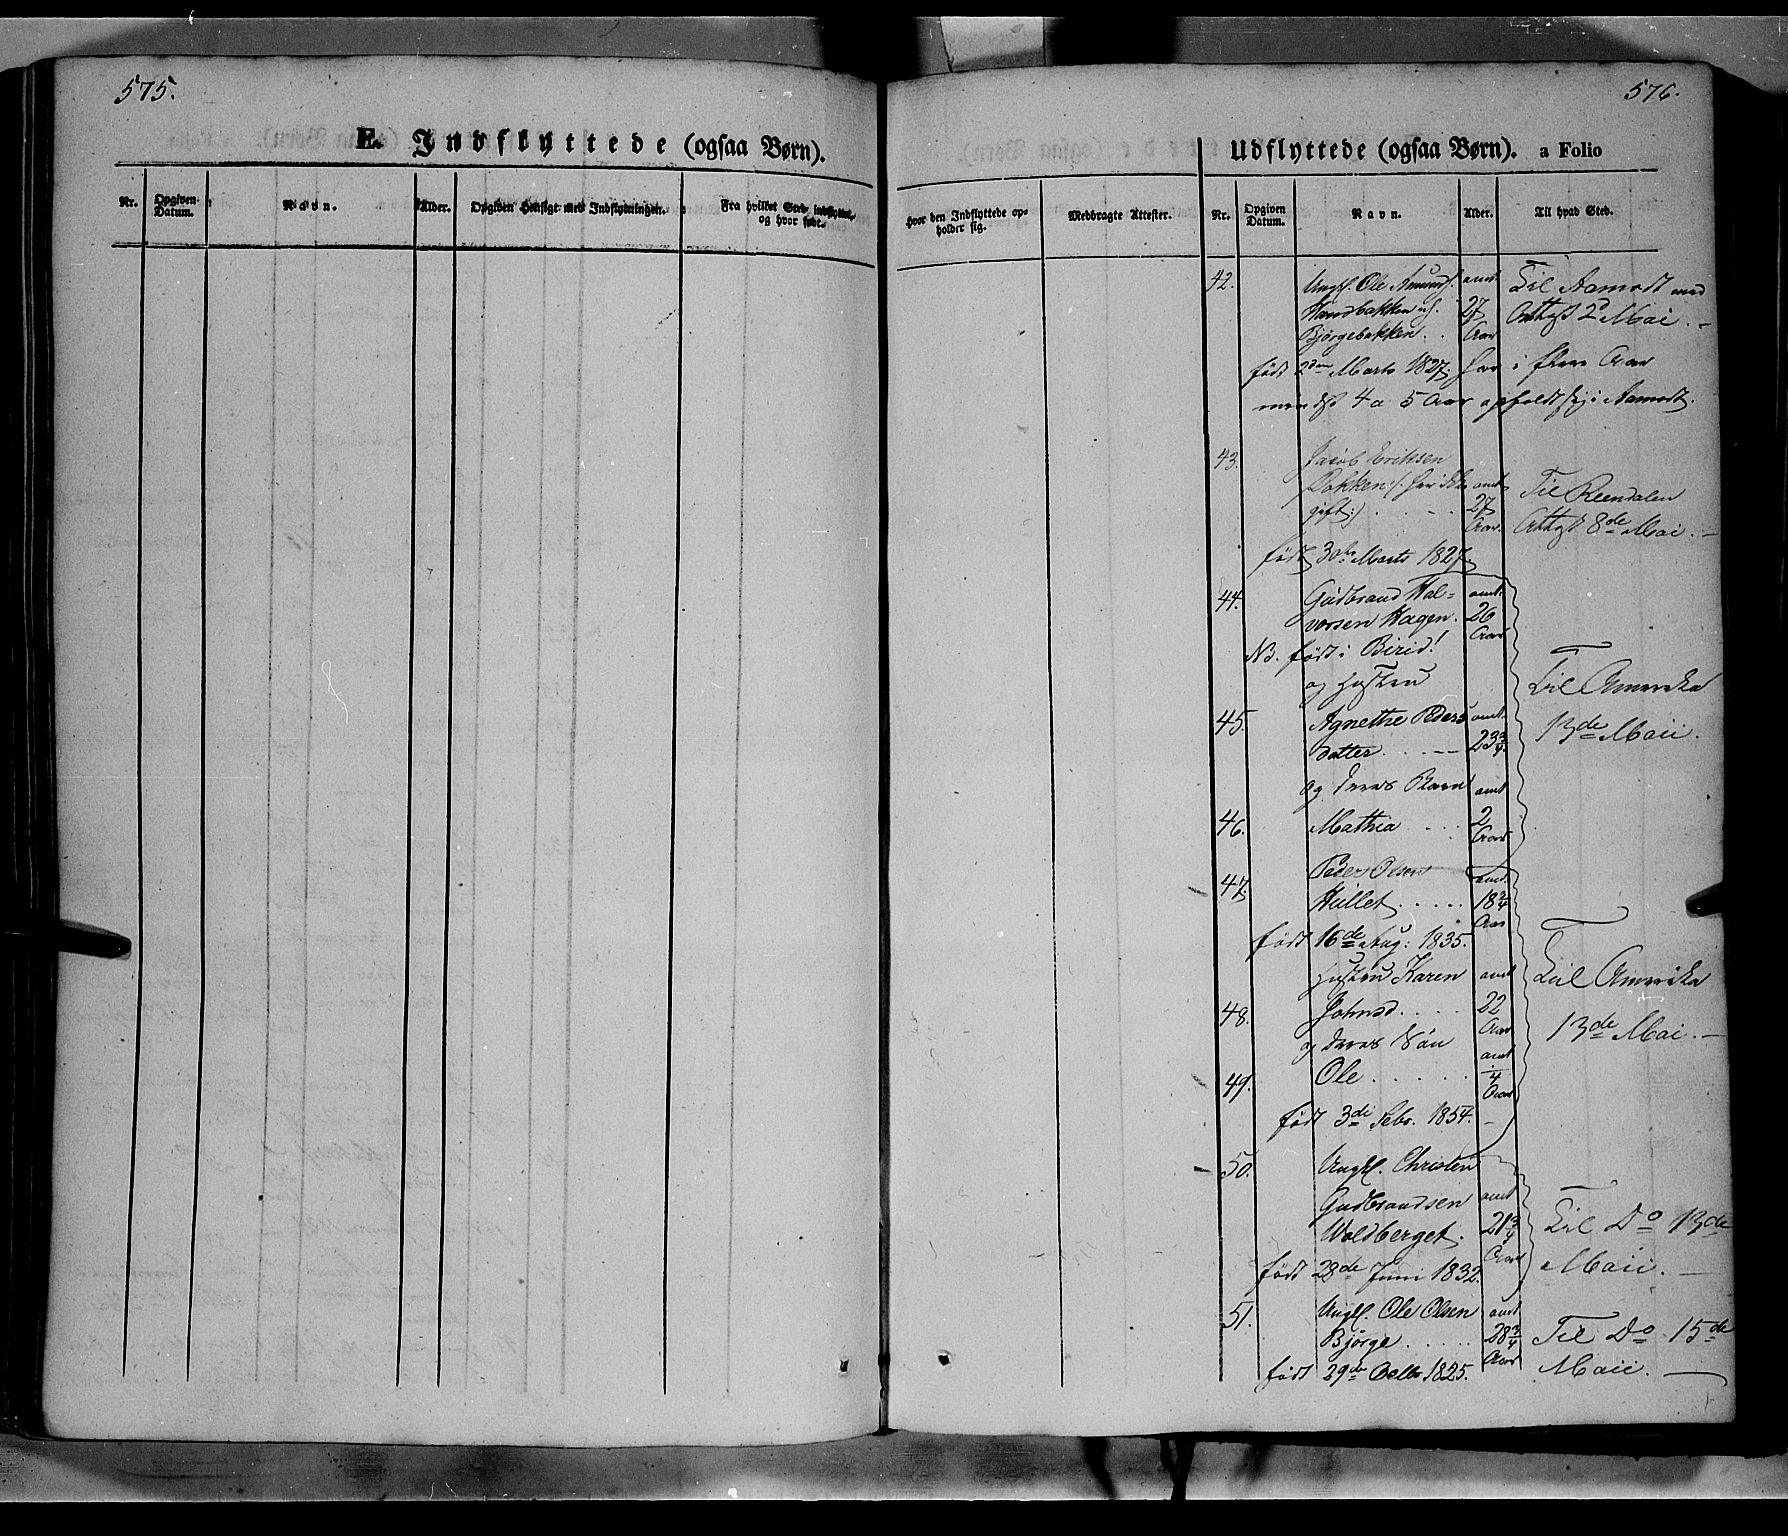 575.
E. Indflyttede (ogsaa Børn).
Nr.
Opgiven Datum.
Navn.
Alder.
Opgiven Hensigt med Indflytningen.
Fra hvilket Sted indflyttet, og hvor født.
576.
Udflyttede (ogsaa Børn). a Folio
Hvor den Indflyttede opholder sig.
Medbragte Attester.
Nr.
Opgiven Datum.
Navn.
Alder.
Til hvad Sted.
42. Ungk. Ole Amunds. omt. Til Aamodt med
27 Attest 2d Mai. -
Bjørgebakken . . Aar
født 2den Marts 1827. har i flere Aar
mindst 4 a 5 Aar opholdt sig i Aamodt.
43. Jacob Eriksen
Bakken (: har ikke omt Til Reendalen
gift :) . . . . 27 Aar. Attest 8de Mai. -
født 30te Marts 1827.
44. Gudbrand Hal- omt.
vorsen Hagen. 26 Aar
NB. født i Birid!
og Hustru Til Amerika
45. Agnethe Peders omt. 13de Maii.
datter . . . . 23 3/4.
og deres Barn omt
46. Mathea . . . 2 Aar
47. Peder Olsen omt.
Hullet . . . . . 18 3/4 Aar
født 16de Aug: 1835.
Hustru Karen omt Til Amerika
48. Johnsd. . . . . 22 Aar 13de Mai. -
og deres Søn omt
49. Ole . . . . . 1/4 Aar
født 3de Febr. 1854. -
50. Ungk. Christen
Gudbrandsen omt
Woldberget. 21 3/4 Aar Til Do 13de
født 28de Juni 1832. Maii. -
51. Ungk. Ole Olsen omt
Bjørge . . . . . 28 3/4 Aar Til Do 15de
født 29de Octbr 1825. Maii. -